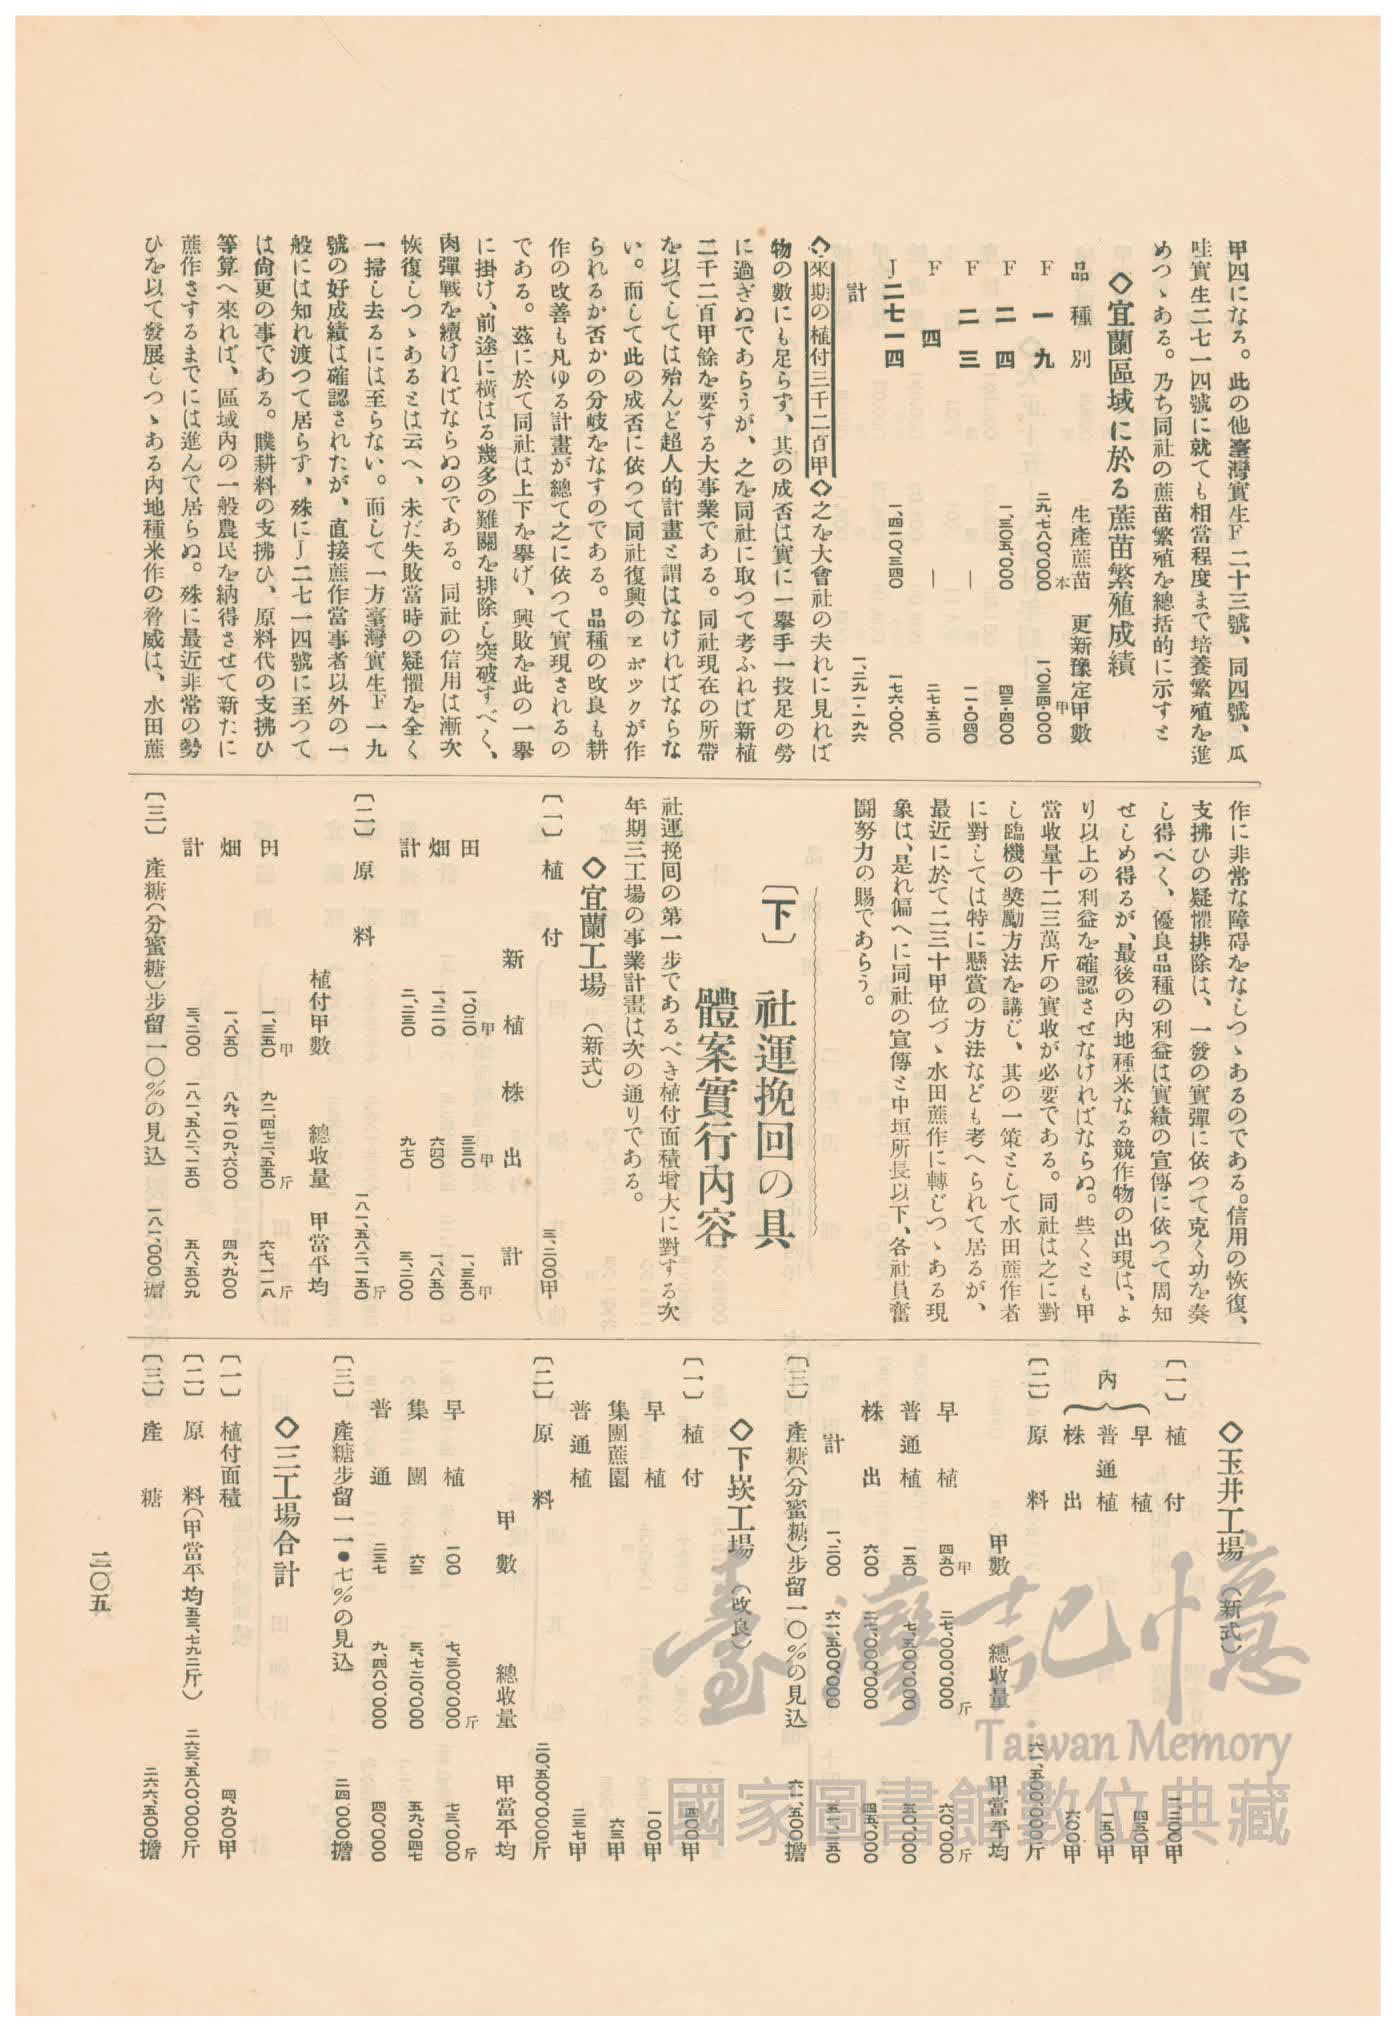 甲四になる。此の他臺灣實生F二十三號、同四號、瓜
哇實生二七一四號に就ても相當程度まで培養繁殖を進
めつゝある。乃ち同社の蔗苗繁殖を總括的に示すと
◇宜蘭區域に於る蔗苗繁殖成績
品種別 生產蔗苗 更新豫定甲數
F 一九 二九、七八〇、〇〇〇本 一、〇三四・〇〇〇甲
F 二四 一、三〇五、〇〇〇 四三・四〇〇
F 二三 — 一一・〇四〇
F 四 — 二七・五二〇
J二七一四 一、四一〇、三四〇 一七六・〇〇〇
計 一、二九一・一九六
◇來期の植付三千二百甲◇之を大會社の夫れに見れば
物の數にも足らず、其の成否は實に一擧手一投足の勞
に過ぎぬであらうが、之を同社に取つて考ふれば新植
二千二百甲餘を要する大事業である。同社現在の所帶
を以てしては殆んど超人的計畫と謂はなければならな
い。而して此の成否に依つて同社復興のヱポックが作
られるか否かの分岐をなすのである。品種の改良も耕
作の改善も凡ゆる計畫が總て之に依つて實現されるの
である。茲に於て同社は上下を擧げ、興敗を此の一擧
に掛け、前途に橫はる幾多の難關を排除し突破すべく、
肉彈戰を續ければならぬのである。同社の信用は漸次
恢復しつゝあるとは云へ、未だ失敗當時の疑懼を全く
一掃し去るには至らない。而して一方臺灣實生F一九
號の好成績は確認されたが、直接蔗作當事者以外の一
般には知れ渡つて居らず、殊にJ二七一四號に至つて
は尙更の事である。贌耕料の支拂ひ、原料代の支拂ひ
等算へ來れば、區域內の一般農民を納得させて新たに
蔗作さするまでには進んで居らぬ。殊に最近非常の勢
ひを以て發展しつゝある內地種米作の脅威は、水田蔗
作に非常な障碍をなしつゝあるのである。信用の恢復、
支拂ひの疑懼排除は、一發の實彈に依つて克く功を奏
し得べく、優良品種の利益は實績の宣傳に依つて周知
せしめ得るが、最後の內地種米なる競作物の出現は、よ
り以上の利益を確認させなければならぬ。些くとも甲
當收量十二三萬斤の實收が必要である。同社は之に對
し臨機の奬勵方法を講じ、其の一策として水田蔗作者
に對しては特に懸賞の方法なども考へられて居るが、
最近に於て二三十甲位づゝ水田蔗作に轉じつゝある現
象は、是れ偏へに同社の宣傳と中垣所長以下、各社員奮
鬪努力の賜であらう。
〔下〕 社運挽回の具
體案實行內容
社運挽回の第一步であるべき植付面積增大に對する次
年期三工場の事業計畫は次の通りである。
◇宜蘭工場(新式)
〔一〕植付 三、二〇〇甲
新植 株出 計
田 一、〇二〇甲 三三〇甲 一、三五〇甲
畑 一、二一〇 六四〇 一、八五〇
計 二、二三〇 九七〇 三、二〇〇
〔二〕原料 一八一、五八二、一五〇斤
植付甲數 總收量 甲當平均
田 一、三五〇甲 九二、四七三、五五〇斤 六七、一一八斤
畑 一、八五〇 八九、一〇九、六〇〇 四九、九〇〇
計 三、二〇〇 一八一、五八二、一五〇 五八、五〇九
〔三〕產糖(分蜜糖)步留一〇%の見込 一八一、〇〇〇擔
◇玉井工場(新式)
〔一〕植付 一、二〇〇甲
內 早植 四五〇甲
普通植 一五〇甲
株出 六〇〇甲
〔二〕原料 六一、五〇〇、〇〇〇斤
甲數 總收量 甲當平均
早植 四五〇甲 二七、〇〇〇、〇〇〇斤 六〇、〇〇〇斤
普通植 一五〇 七、五〇〇、〇〇〇 五〇、〇〇〇
株出 六〇〇 二七、〇〇〇、〇〇〇 四五、〇〇〇
計 一、二〇〇 六一、五〇〇、〇〇〇 五一、二五〇
〔三〕產糖(分蜜糖)步留一〇%の見込 六一、五〇〇擔
◇下崁工場(改良)
〔一〕植付 四〇〇甲
早植 一〇〇甲
集團蔗園 六三甲
普通植 二三七甲
〔二〕原料 二〇、五〇〇、〇〇〇斤
甲數 總收量 甲當平均
早植 一〇〇 七、三〇〇、〇〇〇斤 七三、〇〇〇斤
集團 六三 三、七二〇、〇〇〇 五九、〇四七
普通 二三七 九、四八〇、〇〇〇 四〇、〇〇〇
〔三〕產糖步留一一●七%の見込 二四、〇〇〇擔
◇三工場合計
〔一〕植付面積 四、九〇〇甲
〔二〕原料(甲當平均五三、七九二斤) 二六三、五八〇、〇〇〇斤
〔三〕產糖 二六六、五〇〇擔
二〇五
臺灣記憶
Taiwan Memory
國家圖書館數位典藏